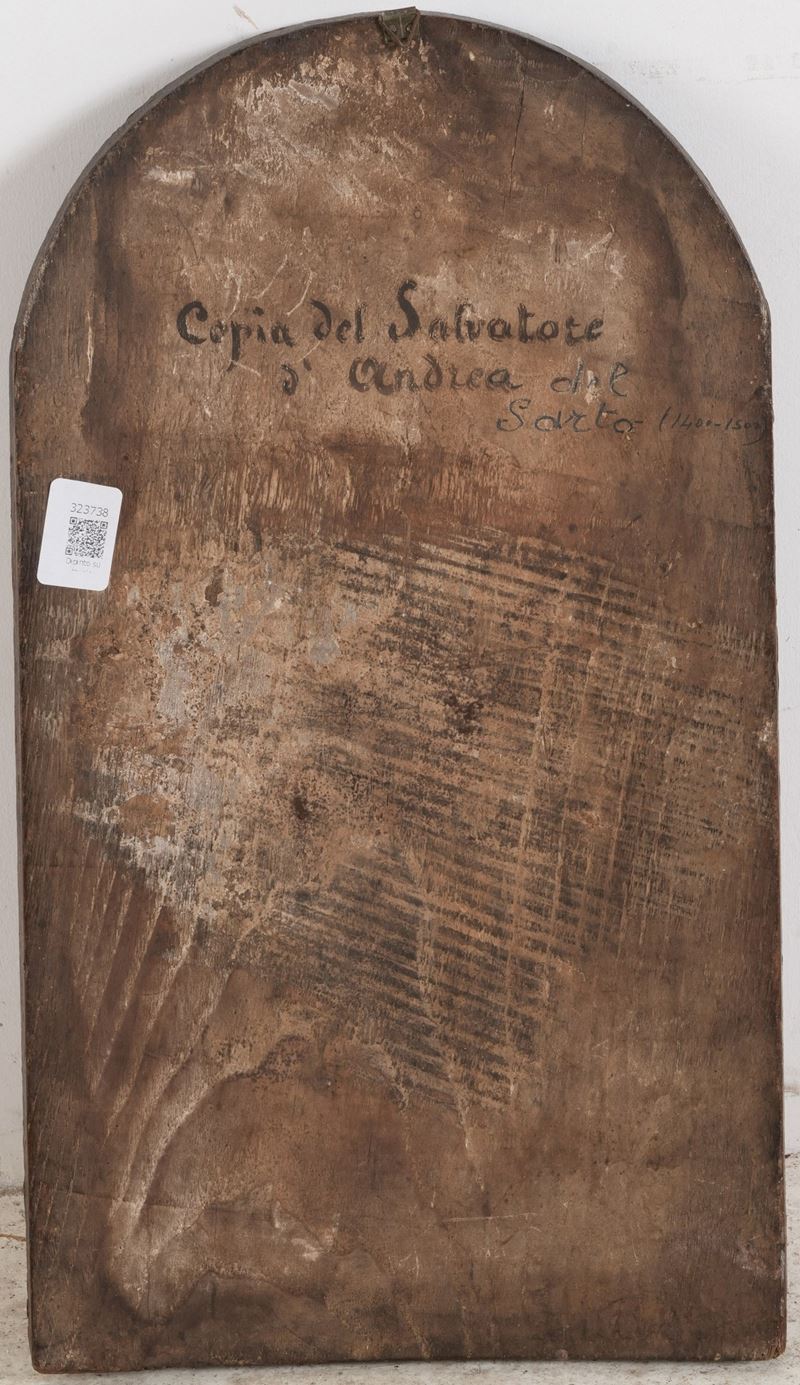 Copia del Salvatore
d' Andrea del
Sarto (1400-1500)
323738
Dipinto su